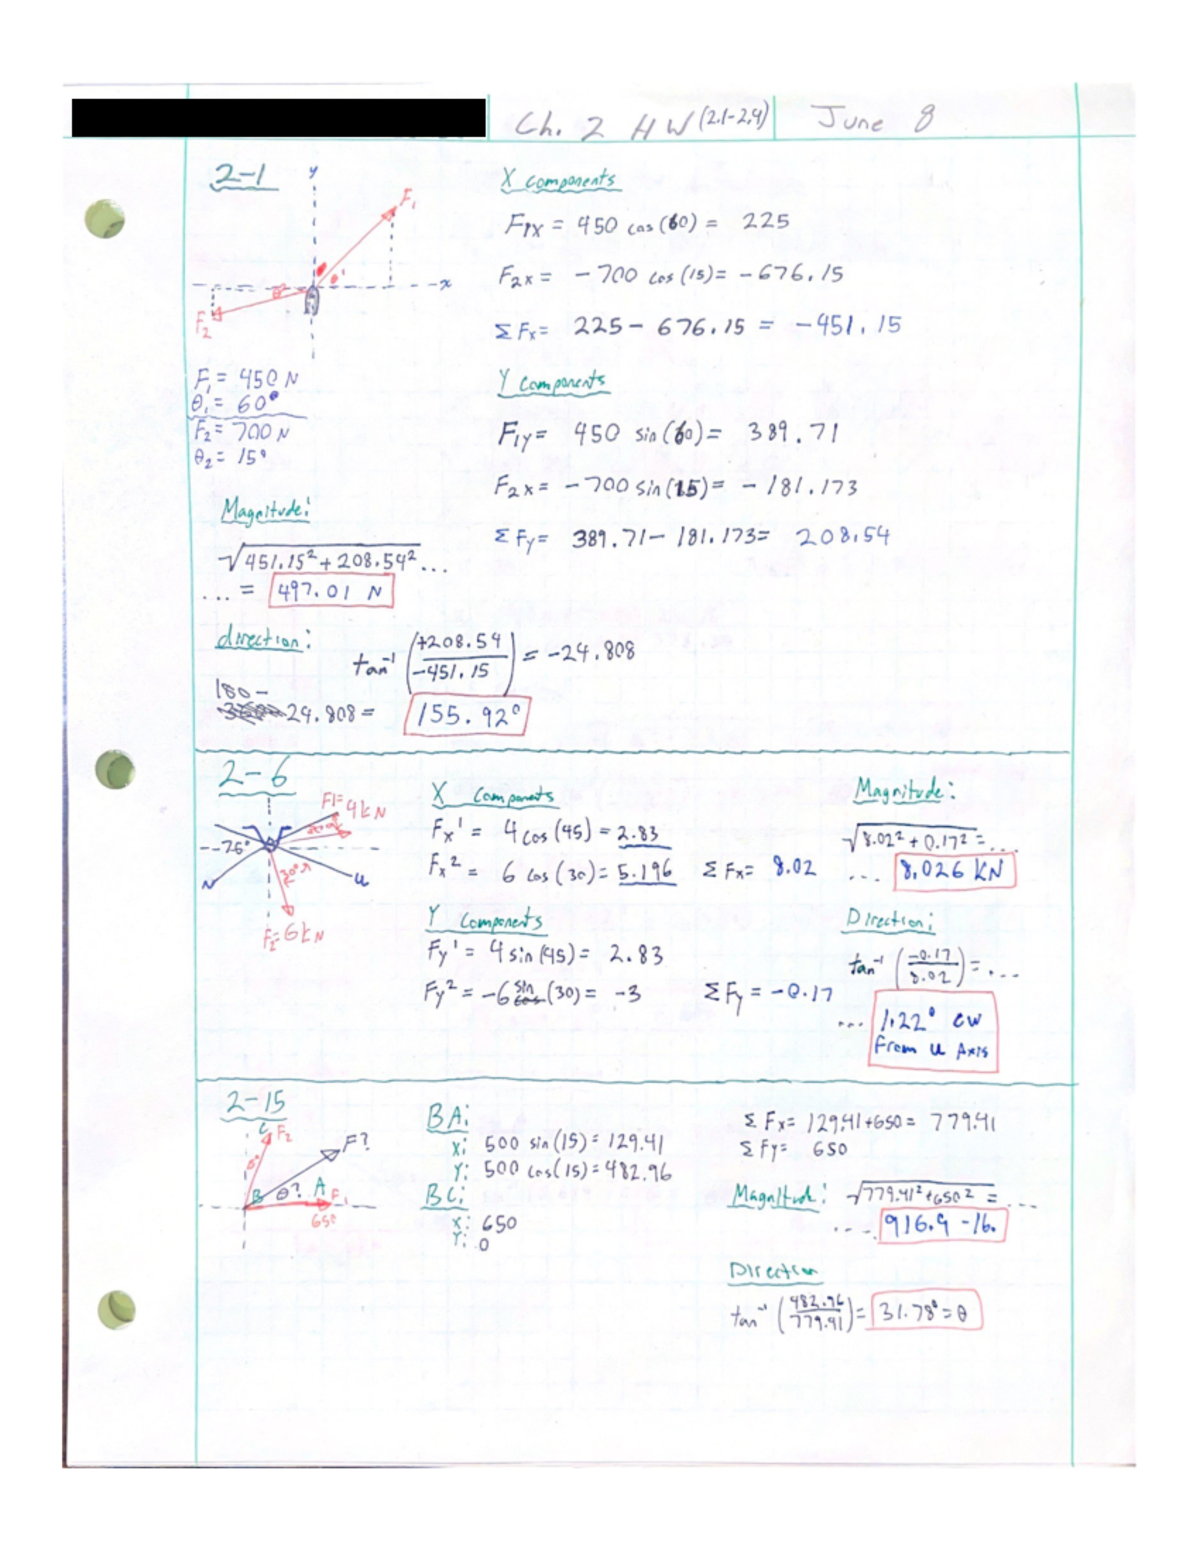 Ch. 2 HW (2.1-2.4) June 8
2-1
y
x
F₁
F₂
F₁ = 450 N
θ₁ = 60°
F₂ = 700 N
θ₂ = 15°
X components
F1x = 450 cos (60) = 225
F2x = -700 cos (15) = -676.15
ΣFx = 225 - 676.15 = -451.15
Y components
F1y = 450 sin (60) = 389.71
F2x = -700 sin (15) = -181.173
ΣFy = 389.71 - 181.173 = 208.54
Magnitude:
√451.15² + 208.54² ...
... = 497.01 N
direction:
tan⁻¹ (+208.54 / -451.15) = -24.808
180 -
24.808 = 155.92°
2-6
F1 = 4kN
75°
30°
u
F₂ = 6kN
X Components
Fx¹ = 4 cos (45) = 2.83
Fx² = 6 cos (30) = 5.196 ΣFx = 8.02
Y Components
Fy¹ = 4 sin (45) = 2.83
Fy² = -6 sin (30) = -3 ΣFy = -0.17
Magnitude:
√8.02² + 0.17² = ...
... 8.026 KN
Direction:
tan⁻¹ (-0.17 / 8.02) = ...
... 1.22° CW
from u Axis
2-15
C
F₂
F?
B θ? A F₁
650
BA:
X: 500 sin (15) = 129.41
Y: 500 cos (15) = 482.96
BC:
X: 650
Y: 0
ΣFx = 129.41 + 650 = 779.41
ΣFy = 650
Magnitude: √779.41² + 650² = ...
... 916.9 -lb.
Direction
tan⁻¹ (482.96 / 779.41) = 31.78° = θ